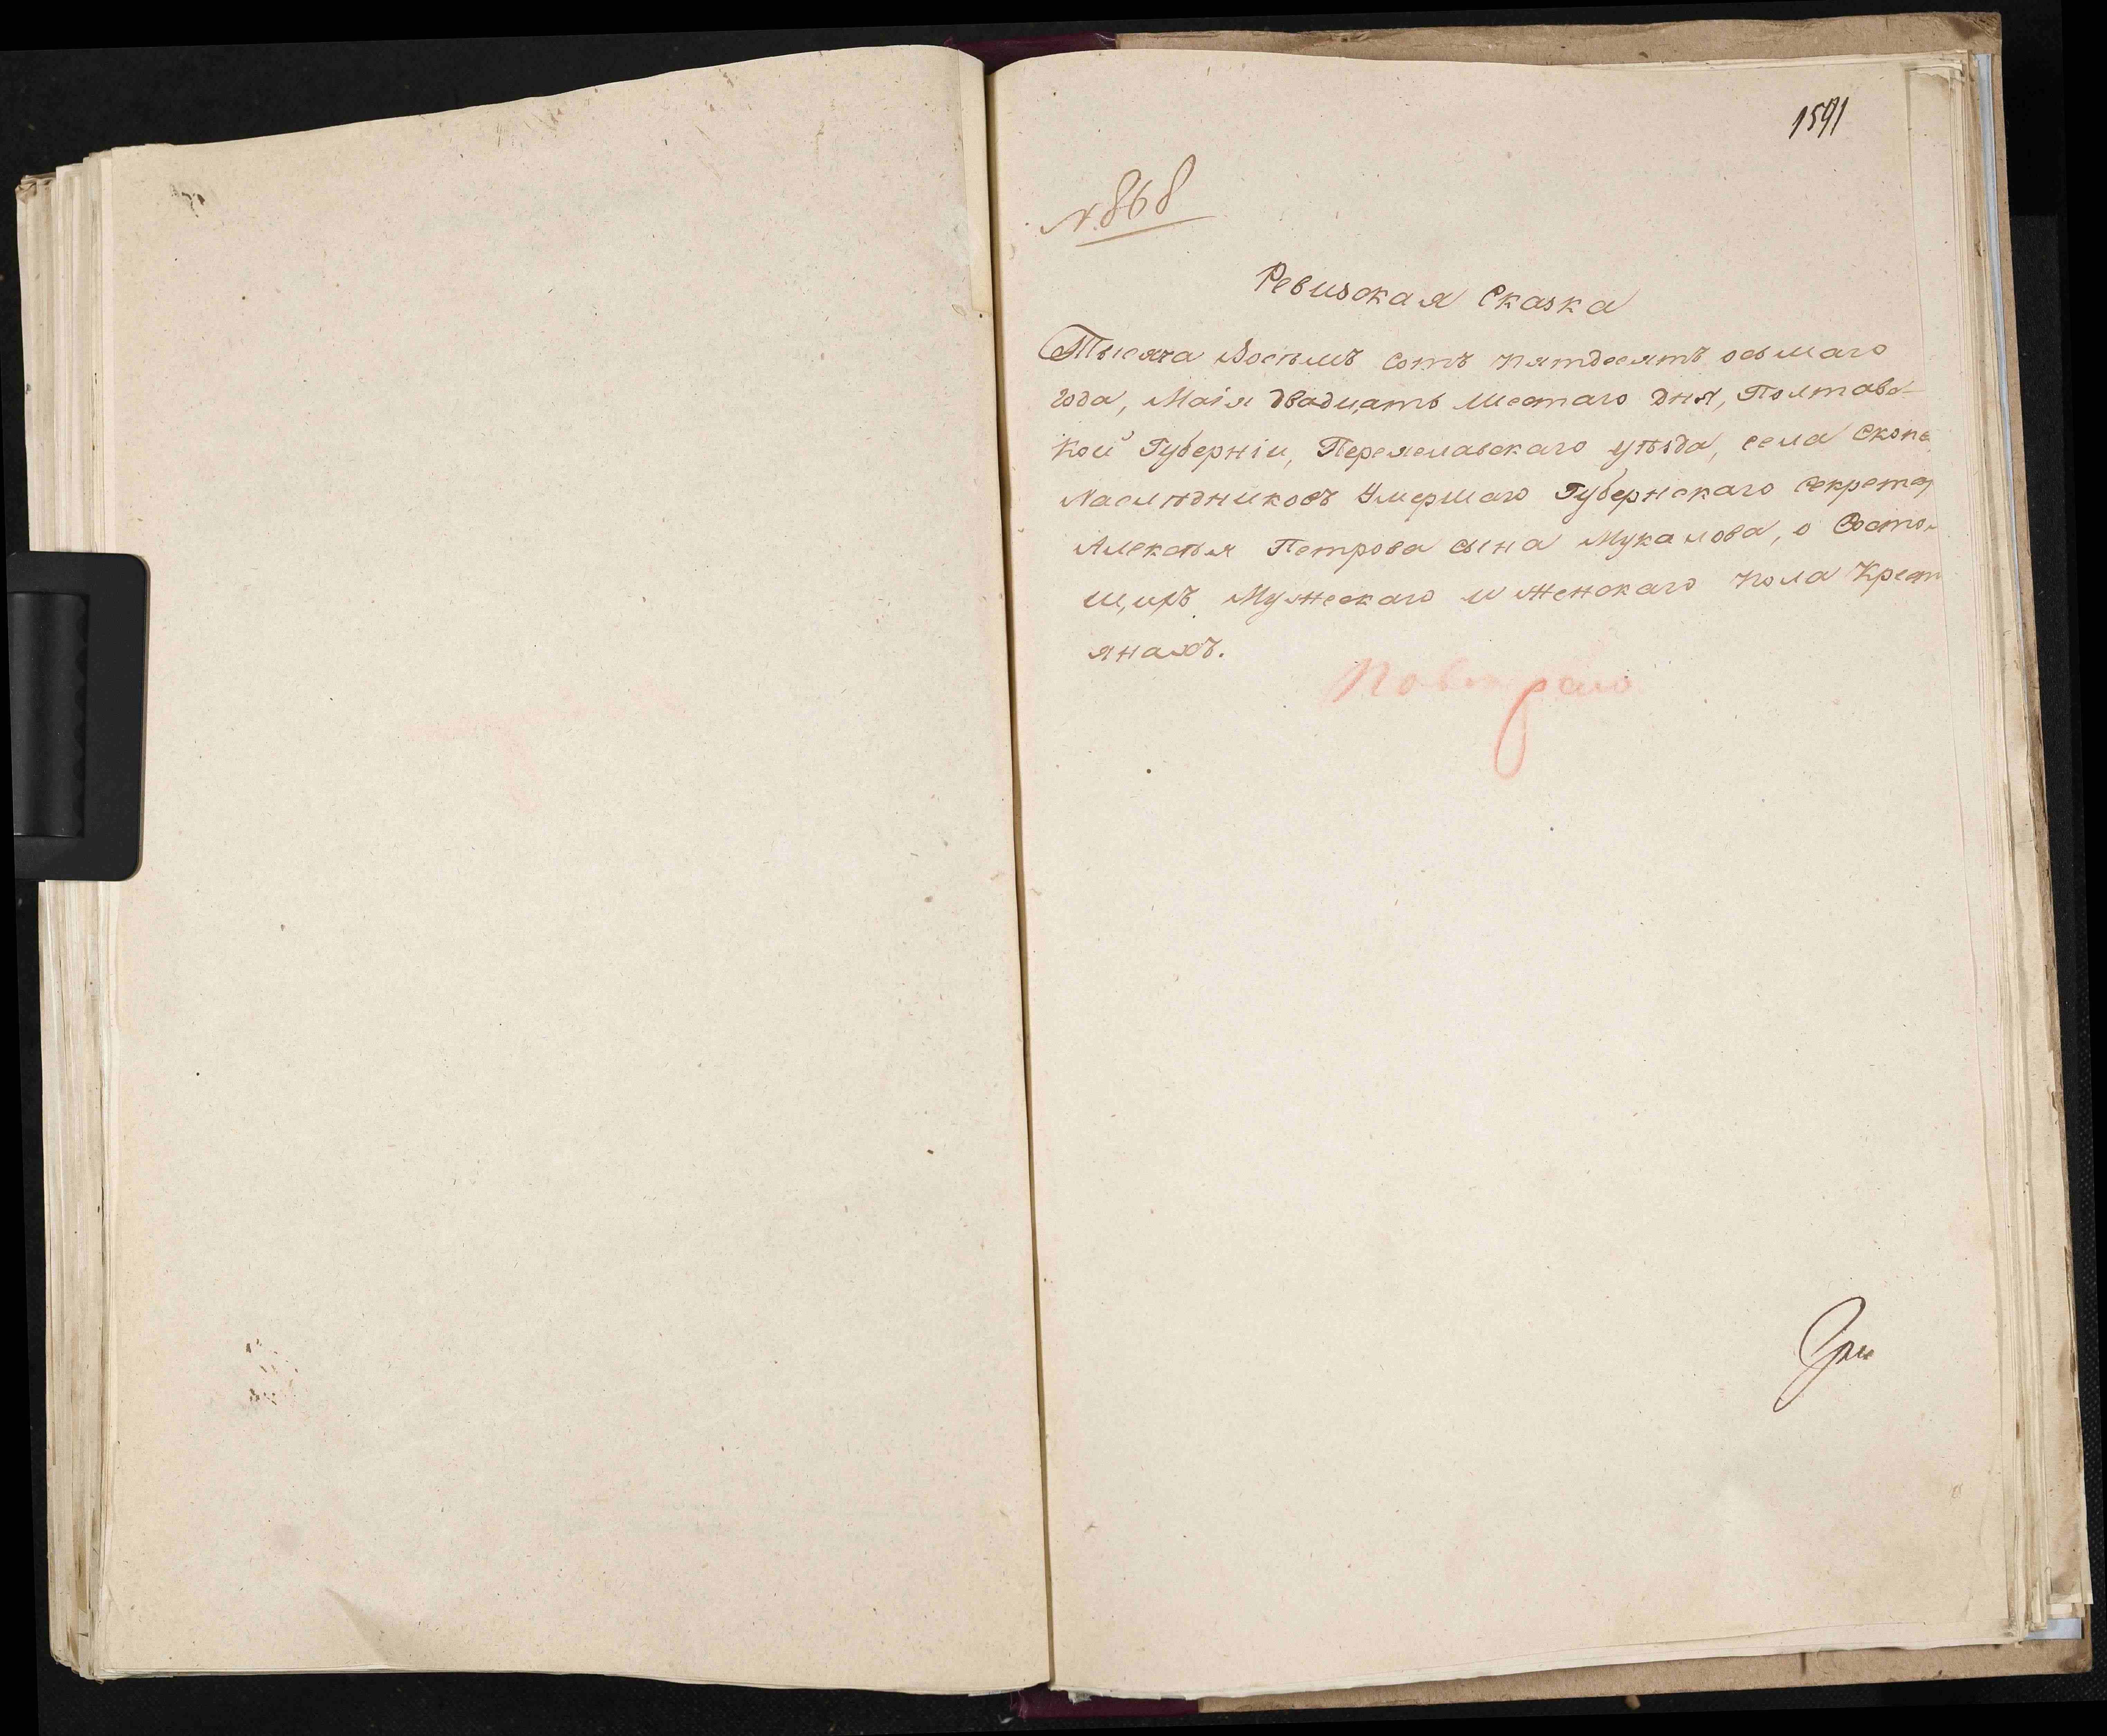 1591
N. 868
Ревизская Сказка
Тысяча Восемъ сотъ пятдесятъ осьмаго
года, Маія двадцать шестаго дня, Полтавс-
кой Губерніи, Переяславскаго уѣзда, села Скоп
Наслѣдниковъ Умершаго Губернскаго Секретар
Алексѣя Петрова сына Мукалова, о Состо
щихъ Мужескаго и женскаго пола Крест
янахъ.